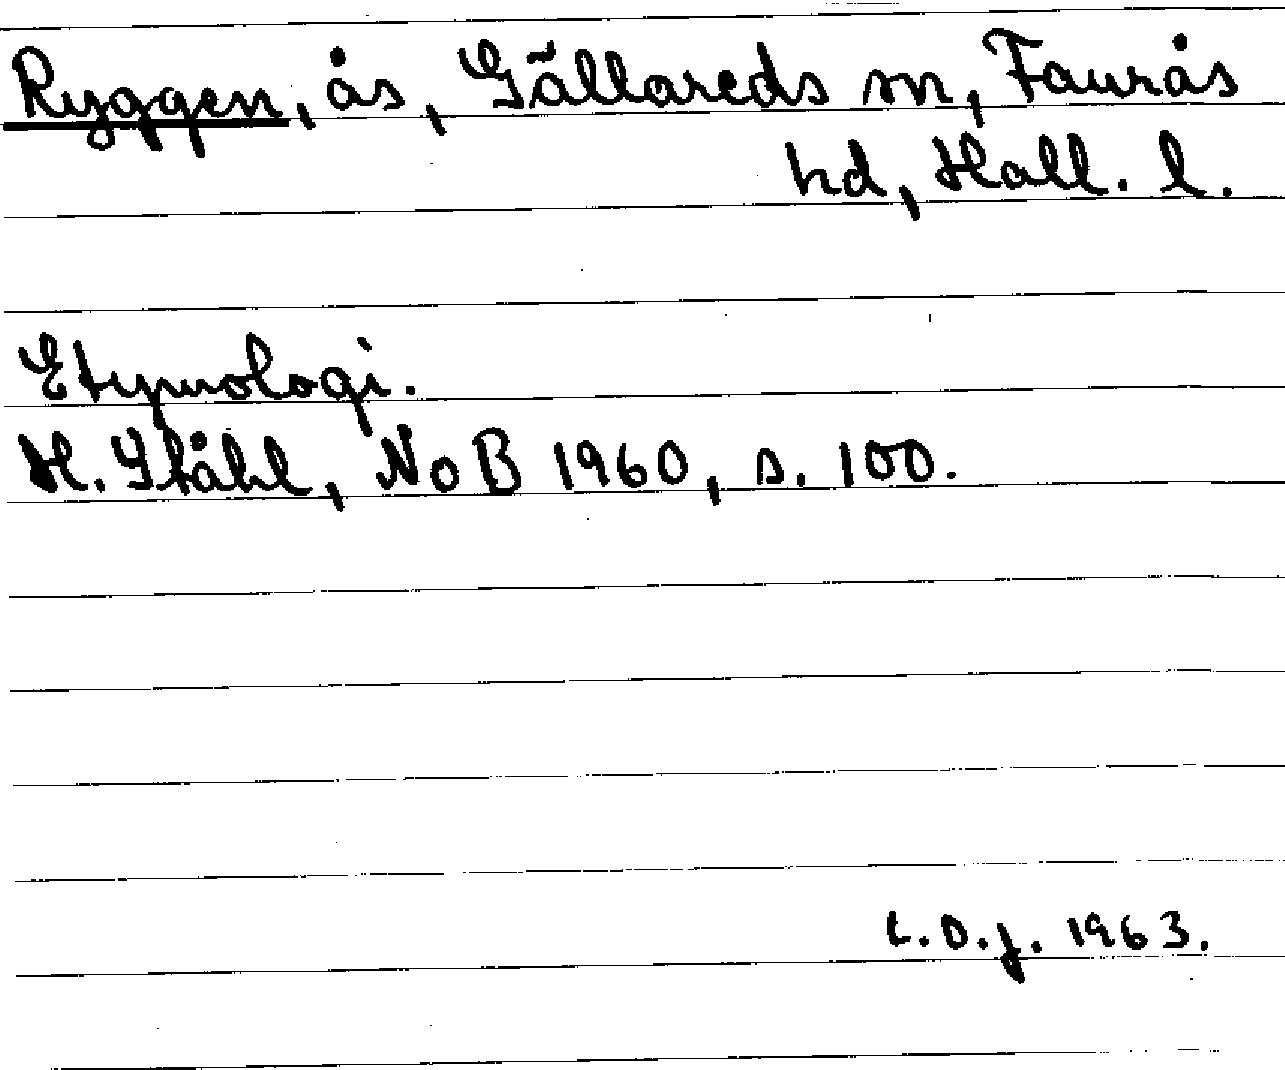 Ryggen, ås, Gällareds sn, Faurås
hd, Hall. l.
Etymologi.
H. Ståhl, NoB 1960, s. 100.
L.O.J. 1963.